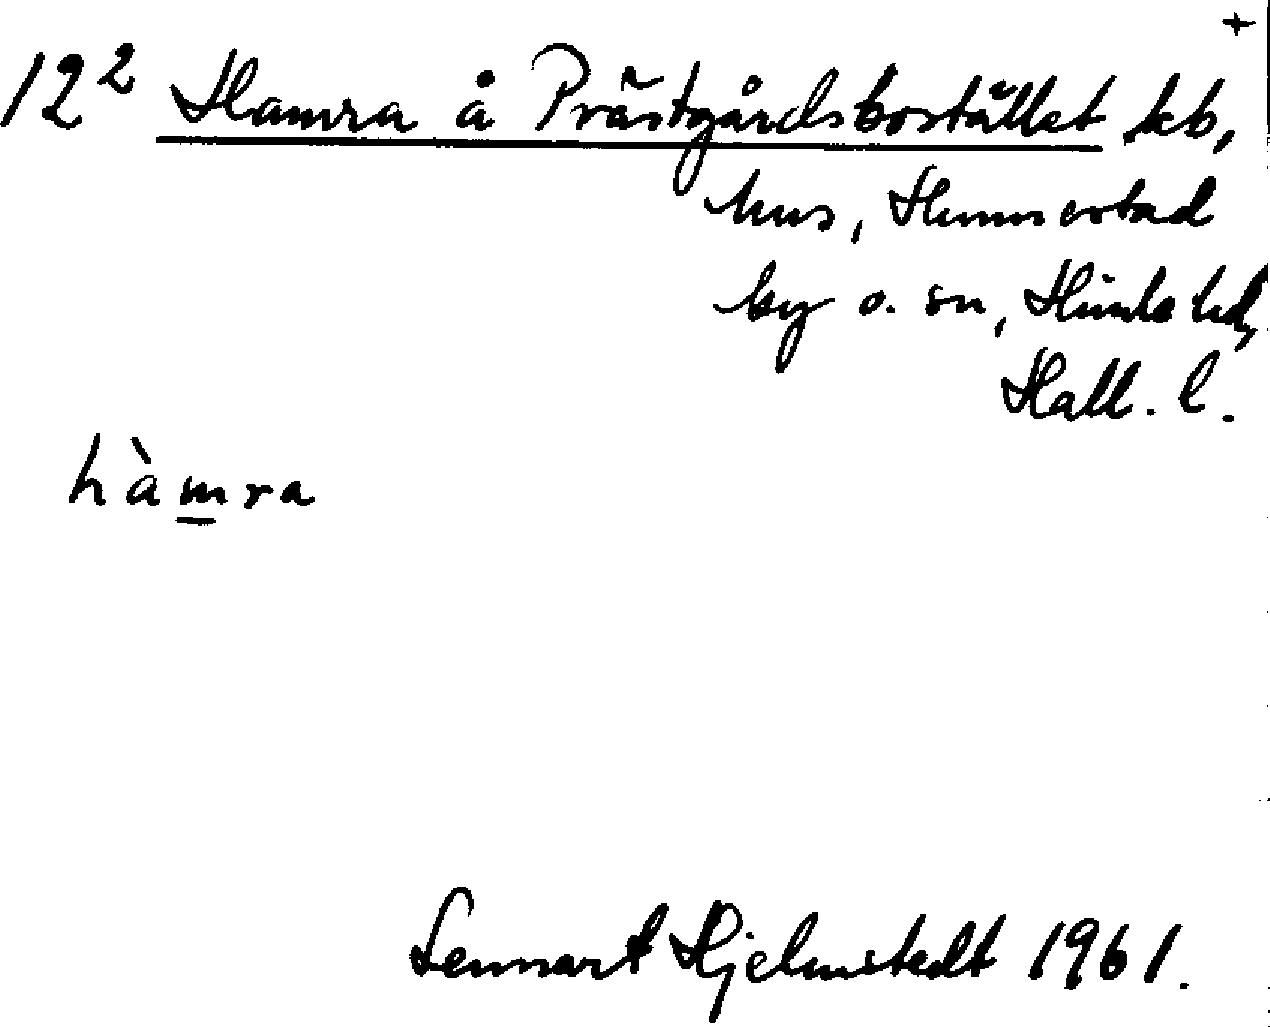 +
12² Hamra å Prästgårdsbostället kb,
hus, Hunnestad
by o. sn, Himle hd,
Hall. l.
hàmra
Lennart Hjelmstedt 1961.